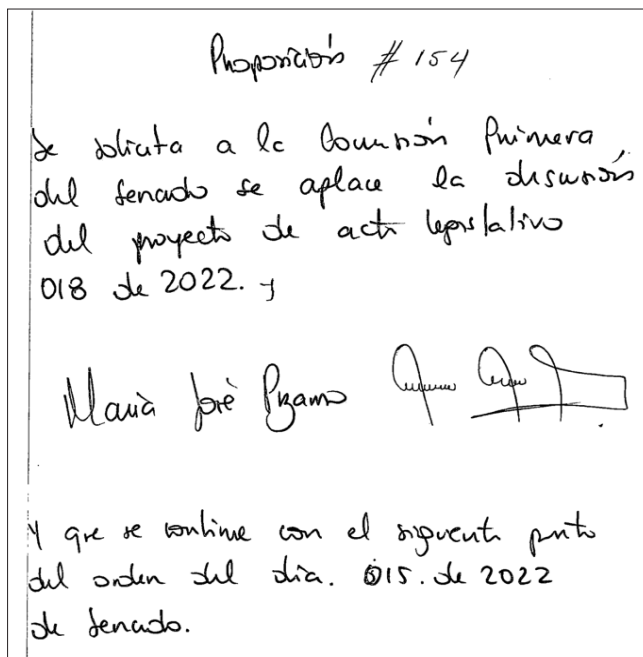 Proposición # 154
Se solicita a la Comisión Primera
del Senado se aplace la discusión
del proyecto de acto legislativo
018 de 2022. y
María José Pizarro
Y que se continue con el siguiente punto
del orden del día. 015. de 2022
de Senado.